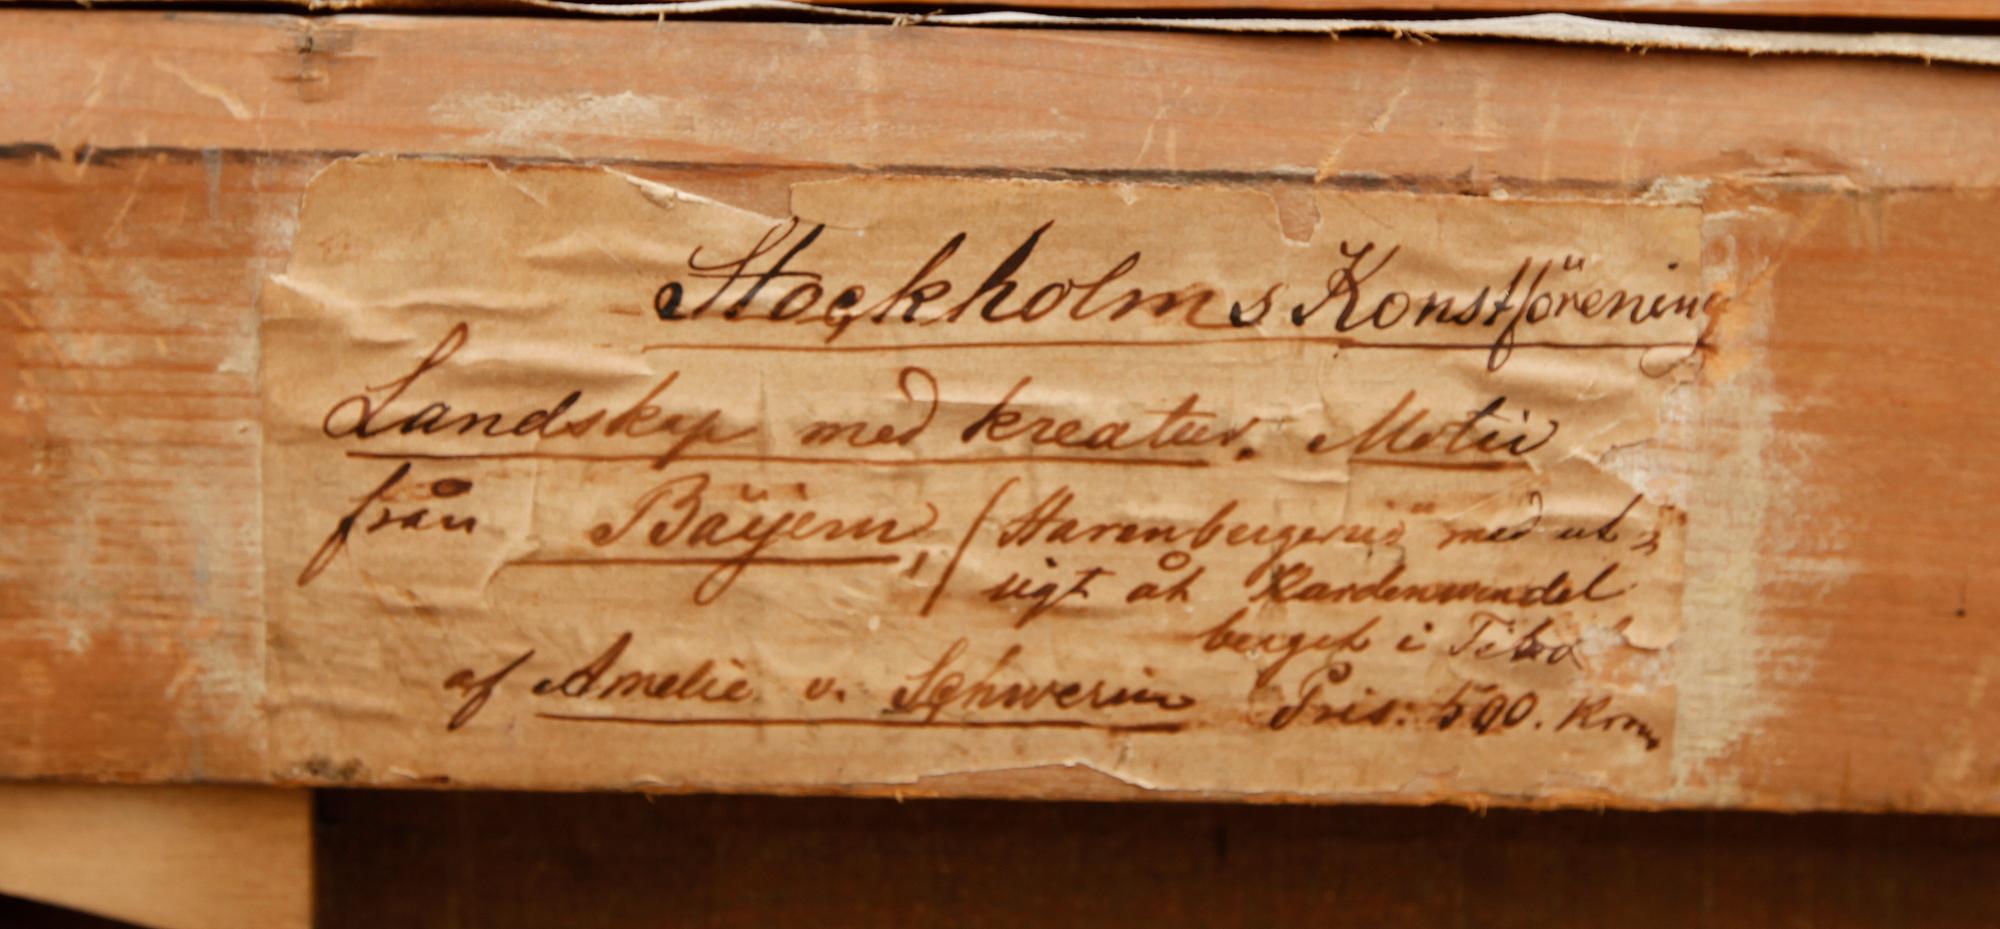 Stockholms Konstförening
Landskap med kreatur. Motiv
från Bäÿern, (Starenbergersjö med ut-
sigt åt
berget i
af Amelie v. Schwerin Pris: 500. Kron